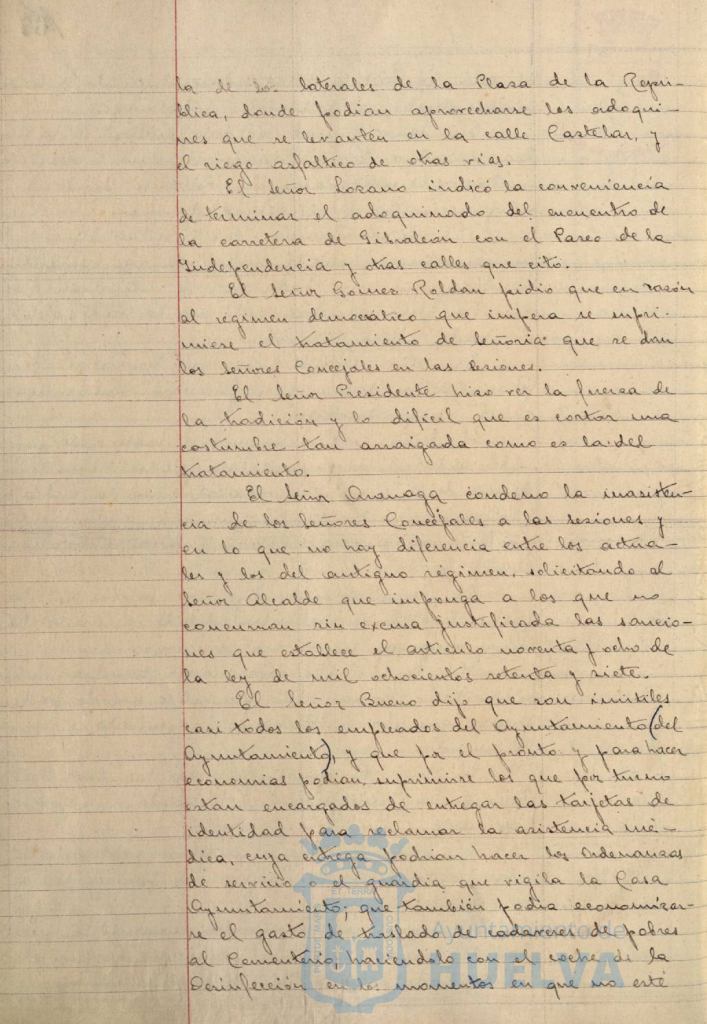 la de los laterales de la Plaza de la Repú-
blica, donde podian aprovecharse los adoqui-
nes que se levantén en la calle Castelar, y
el riego asfaltico de otras vias.
El Señor Lozano indicó la conveniencia
de terminar el adoquinado del encuentro de
la carretera de Gibraleón con el Paseo de la
Independencia y otras calles que citó.
El Señor Gomez Roldan pidió que en razón
al régimen democrático que impera se supri-
miese el tratamiento de Señoria que se dan
los Señores Concejales en las Sesiones.
El Señor Presidente hizo ver la fuerza de
la tradición y lo dificil que es cortar una
costumbre tan arraigada como es la del
tratamiento.
El Señor condeno la inasisten-
cia de los Señores Concejales a las sesiones y
en lo que no hay diferencia entre los actua-
les y los del antiguo régimen, solicitando al
Señor Alcalde que imponga a los que no
concurran sin excusa justificada las sancio-
nes que establece el articulo noventa y ocho de
la ley de mil ochocientos setenta y siete.
El Señor Bueno dijo que son inútiles
casi todos los empleados del Ayuntamiento (del
Ayuntamiento), y que por el pronto y para hacer
economias podian suprimirse los que por turno
estan encargados de entregar las tarjetas de
identidad para reclamar la asistencia mé-
dica, cuya entrega podrian hacer los Ordenanzas
de servicio o el guardia que vigila la Casa
Ayuntamiento; que también podia economizar-
se el gasto de traslado de cadaveres de pobres
al Cementerio, haciendolo con el coche de la
Desinfección en los momentos en que no esté
Ayuntamiento de
HUELVA